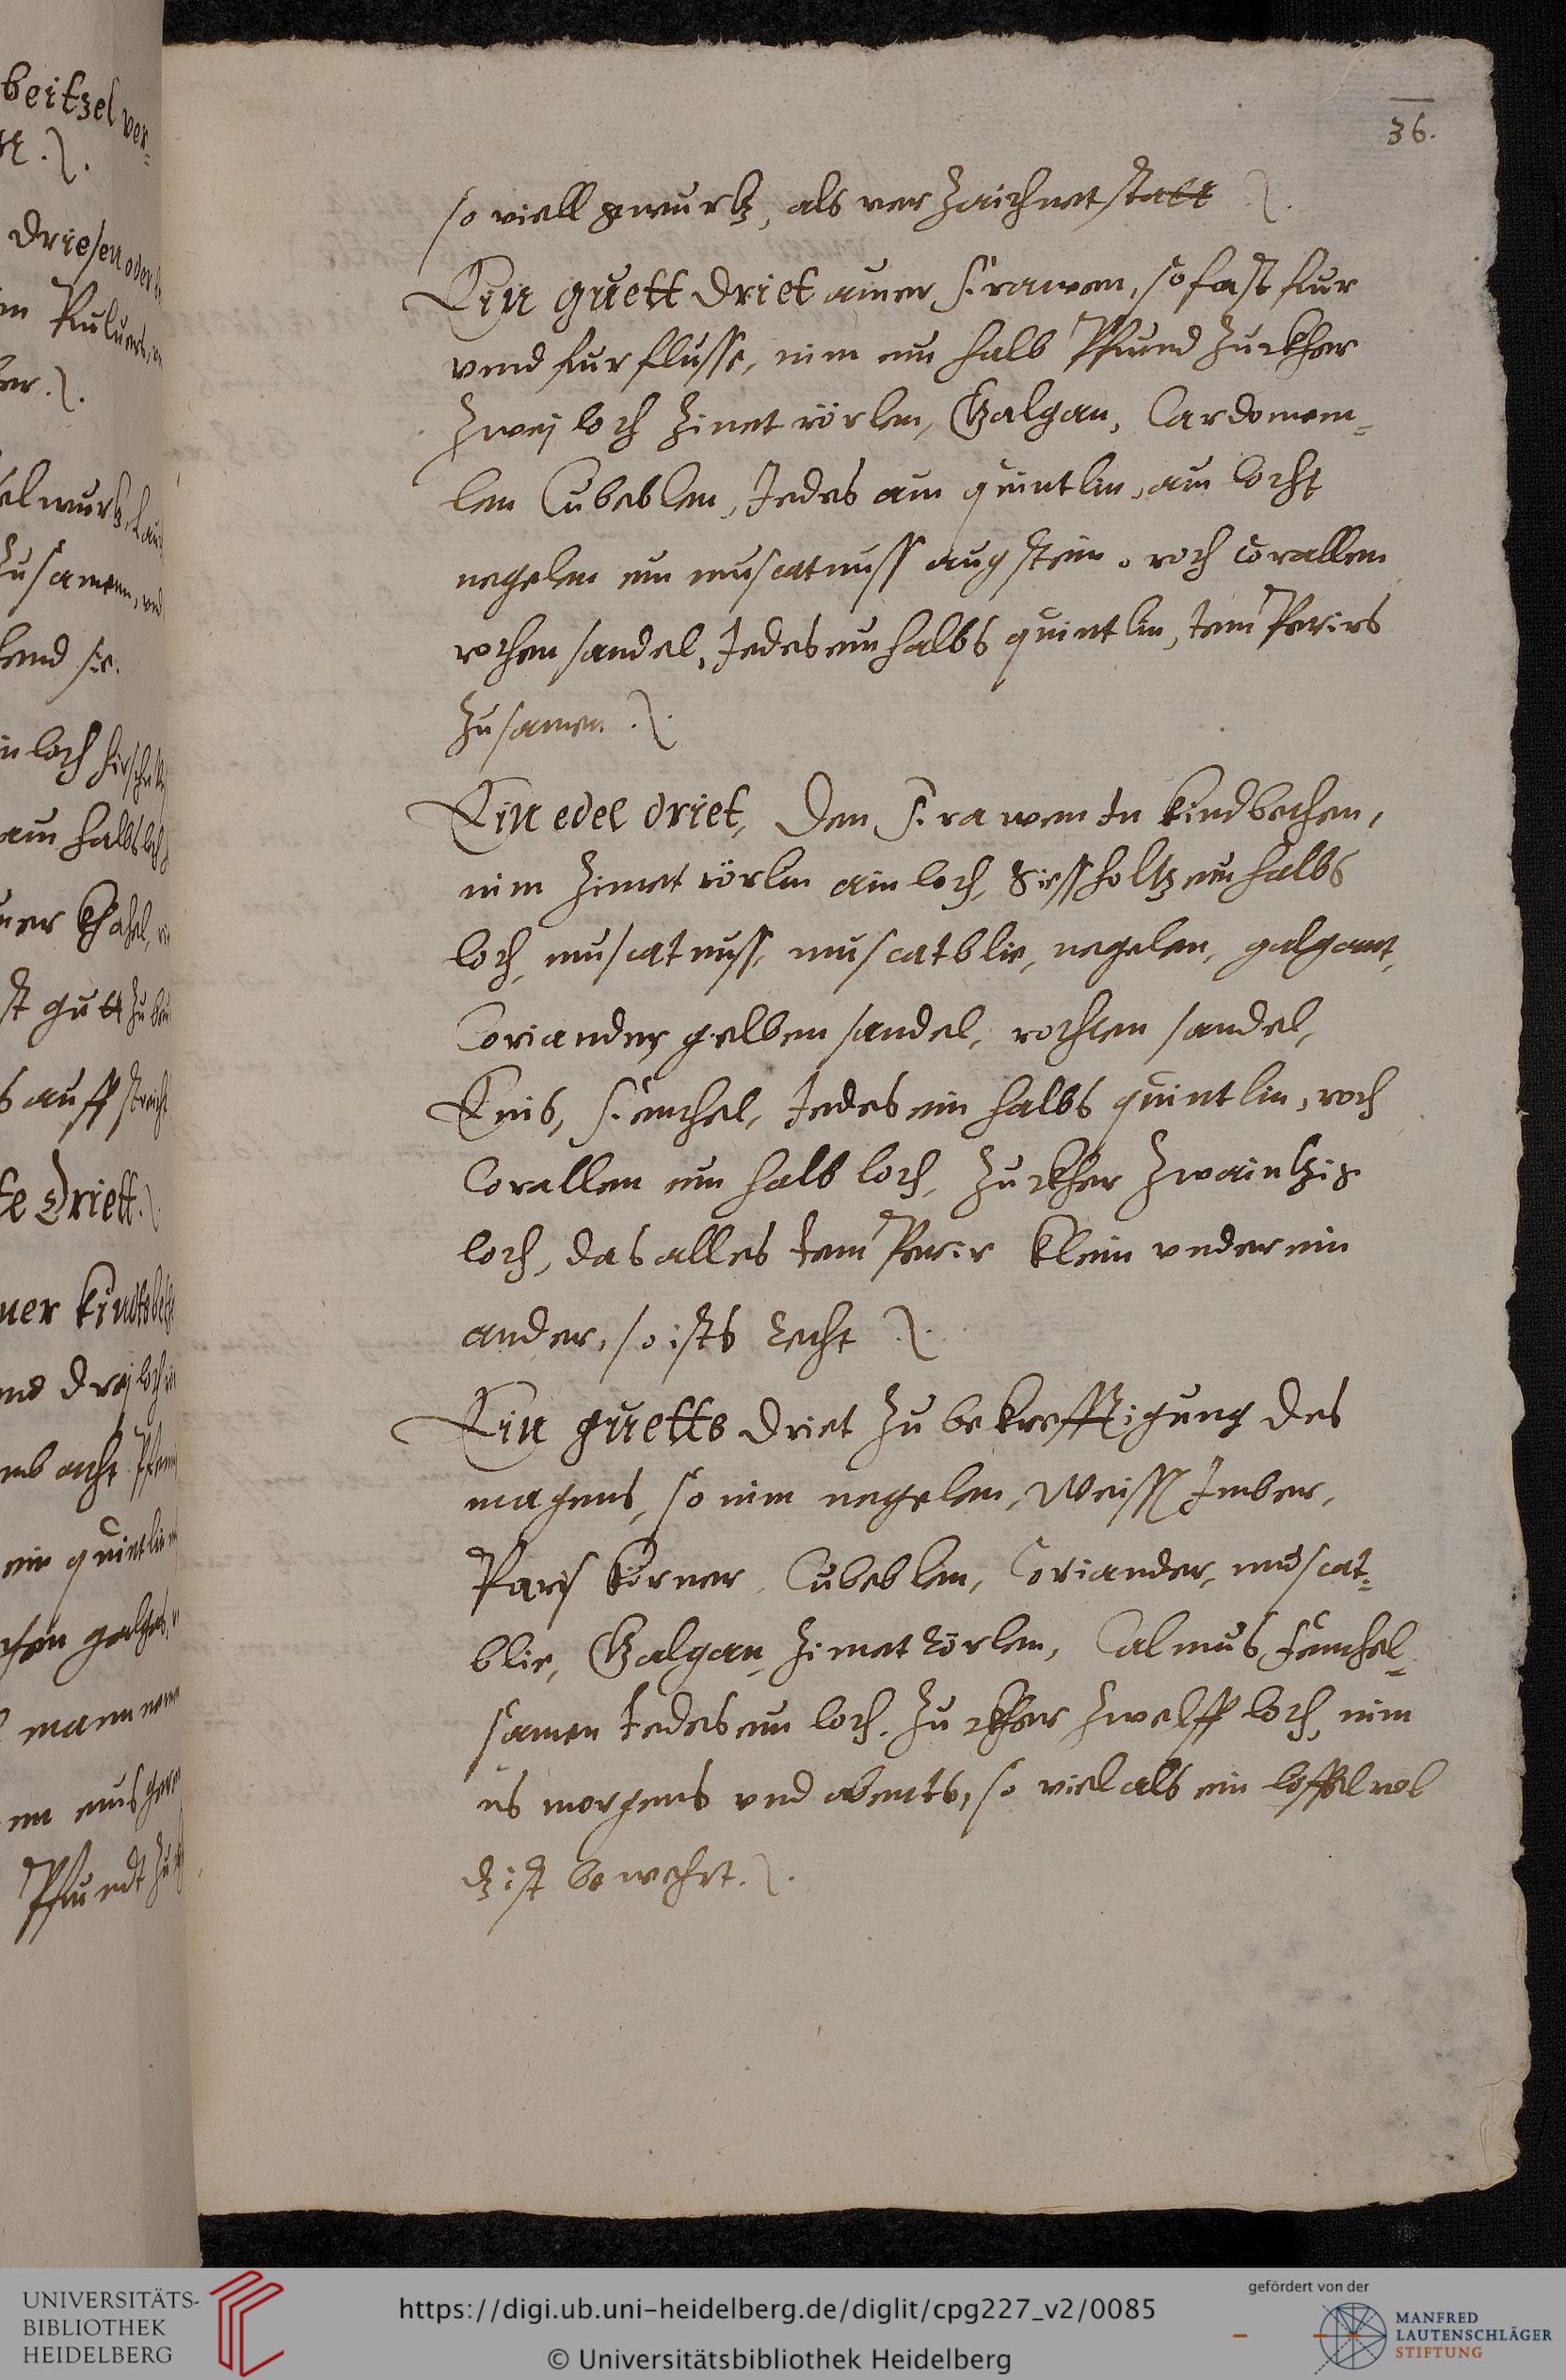 36.
so viell gwurtz, als verzaichnet statt
Ein guett Driet ainer Frawen, so fast fur
vnnd fur flusse, nim ein halb Pfund Zuckher
Zwej loth Zimet rörlen, Galgan, Cardomem-
len Cubeblen, Jedes ain quintlin, ain loth
negelen ein muscatnuss augstein, roth Corallen
rothen sandel, Jedes ein halbs quintlin,
Zusamen
Ein edel driet, Den Frawen In kindbethen,
nim Zimet rörlin ain loth, Siessholtz ein halbs
loth, muscatnuss, muscatblie, negelen, galgant,
Coriander gelben sandel, rothen sandel,
Enis, Fenchel, Jedes ein halbs quintlin, roth
Corallen ein halb loth, Zuckher Zwaintzig
loth, das alles klein vnder ein
ander, so ists Recht
Ein guetts Driet Zu bekrefftigung des
magens, so nim negelen, Weiss Imber,
Paris körner, Cubeblen, Coriander, muscat-
blie, Galgan, Zimet Rörlen, Calmus, Fenchel-
samen Jedes ein loth, Zuckher Zwelff loth, nim
es morgens vnd abents, so viel als ein loffel vol
dz ist bewehrt.
beitzel ver-
Driesen oder
Zusamen, vnd
in loth
ain halbs loth
st gutt Zu
Driett.
drej loth
ein quintlin
Pfundt
UNIVERSITÄTS-
BIBLIOTHEK
HEIDELBERG
https://digi.ub.uni-heidelberg.de/diglit/cpg227_v2/0085
© Universitätsbibliothek Heidelberg
gefördert von der
MANFRED
LAUTENSCHLÄGER
STIFTUNG